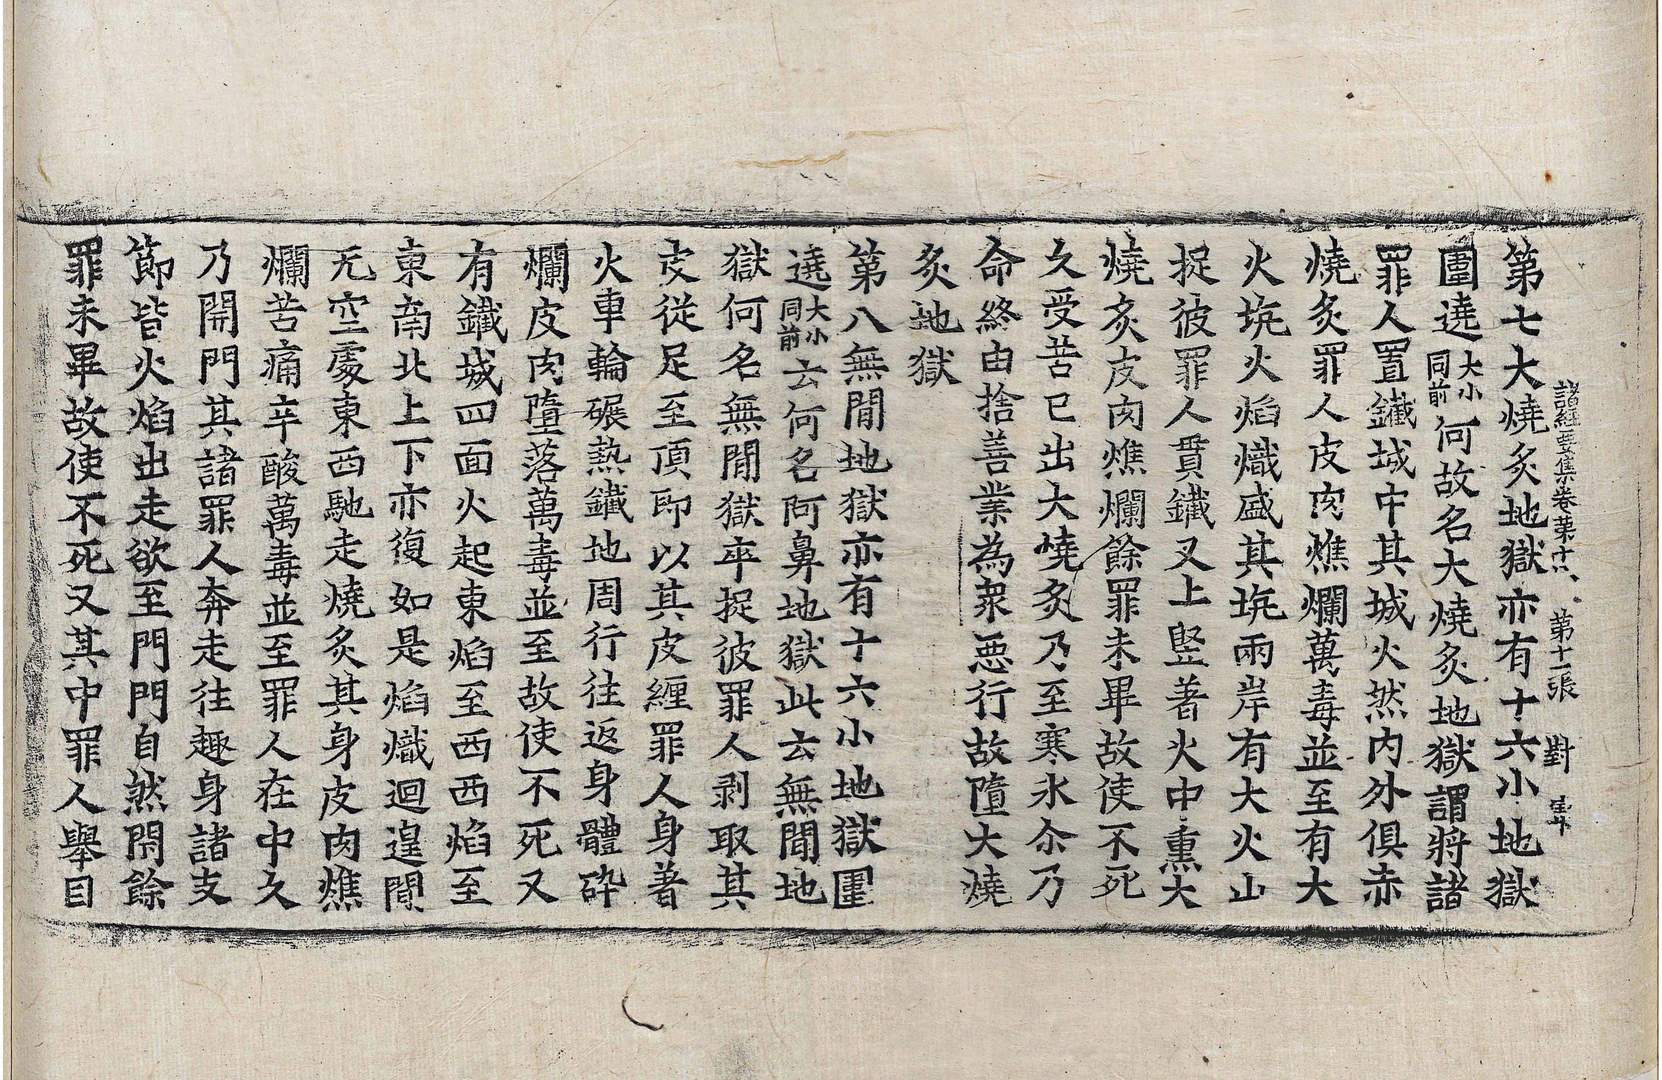 諸經要集卷第十八 第十一張 對
第七大燒炙地獄亦有十六小地獄
圍遶大小同前何故名大燒炙地獄謂將諸
罪人置鐵城中其城火然內外俱赤
燒炙罪人皮肉燋爛萬毒並至有大
火坑火焰熾盛其坑兩岸有大火山
捉彼罪人貫鐵叉上竪著火中熏大
燒炙皮肉燋爛餘罪未畢故使不死
久受苦已出大燒炙乃至寒氷尒乃
命終由捨善業為衆惡行故墮大燒
炙地獄
第八無閒地獄亦有十六小地獄圍
遶大小同前云何名阿鼻地獄此云無閒地
獄何名無閒獄卒捉彼罪人剥取其
皮從足至頂即以其皮纏罪人身著
火車輪碾熱鐵地周行往返身體碎
爛皮肉墮落萬毒並至故使不死又
有鐵城四面火起東焰至西西焰至
東南北上下亦復如是焰熾迴遑閒
无空處東西馳走燒炙其身皮肉燋
爛苦痛辛酸萬毒並至罪人在中久
乃開門其諸罪人奔走往趣身諸支
節皆火焰出走欲至門門自然閇餘
罪未畢故使不死又其中罪人舉目